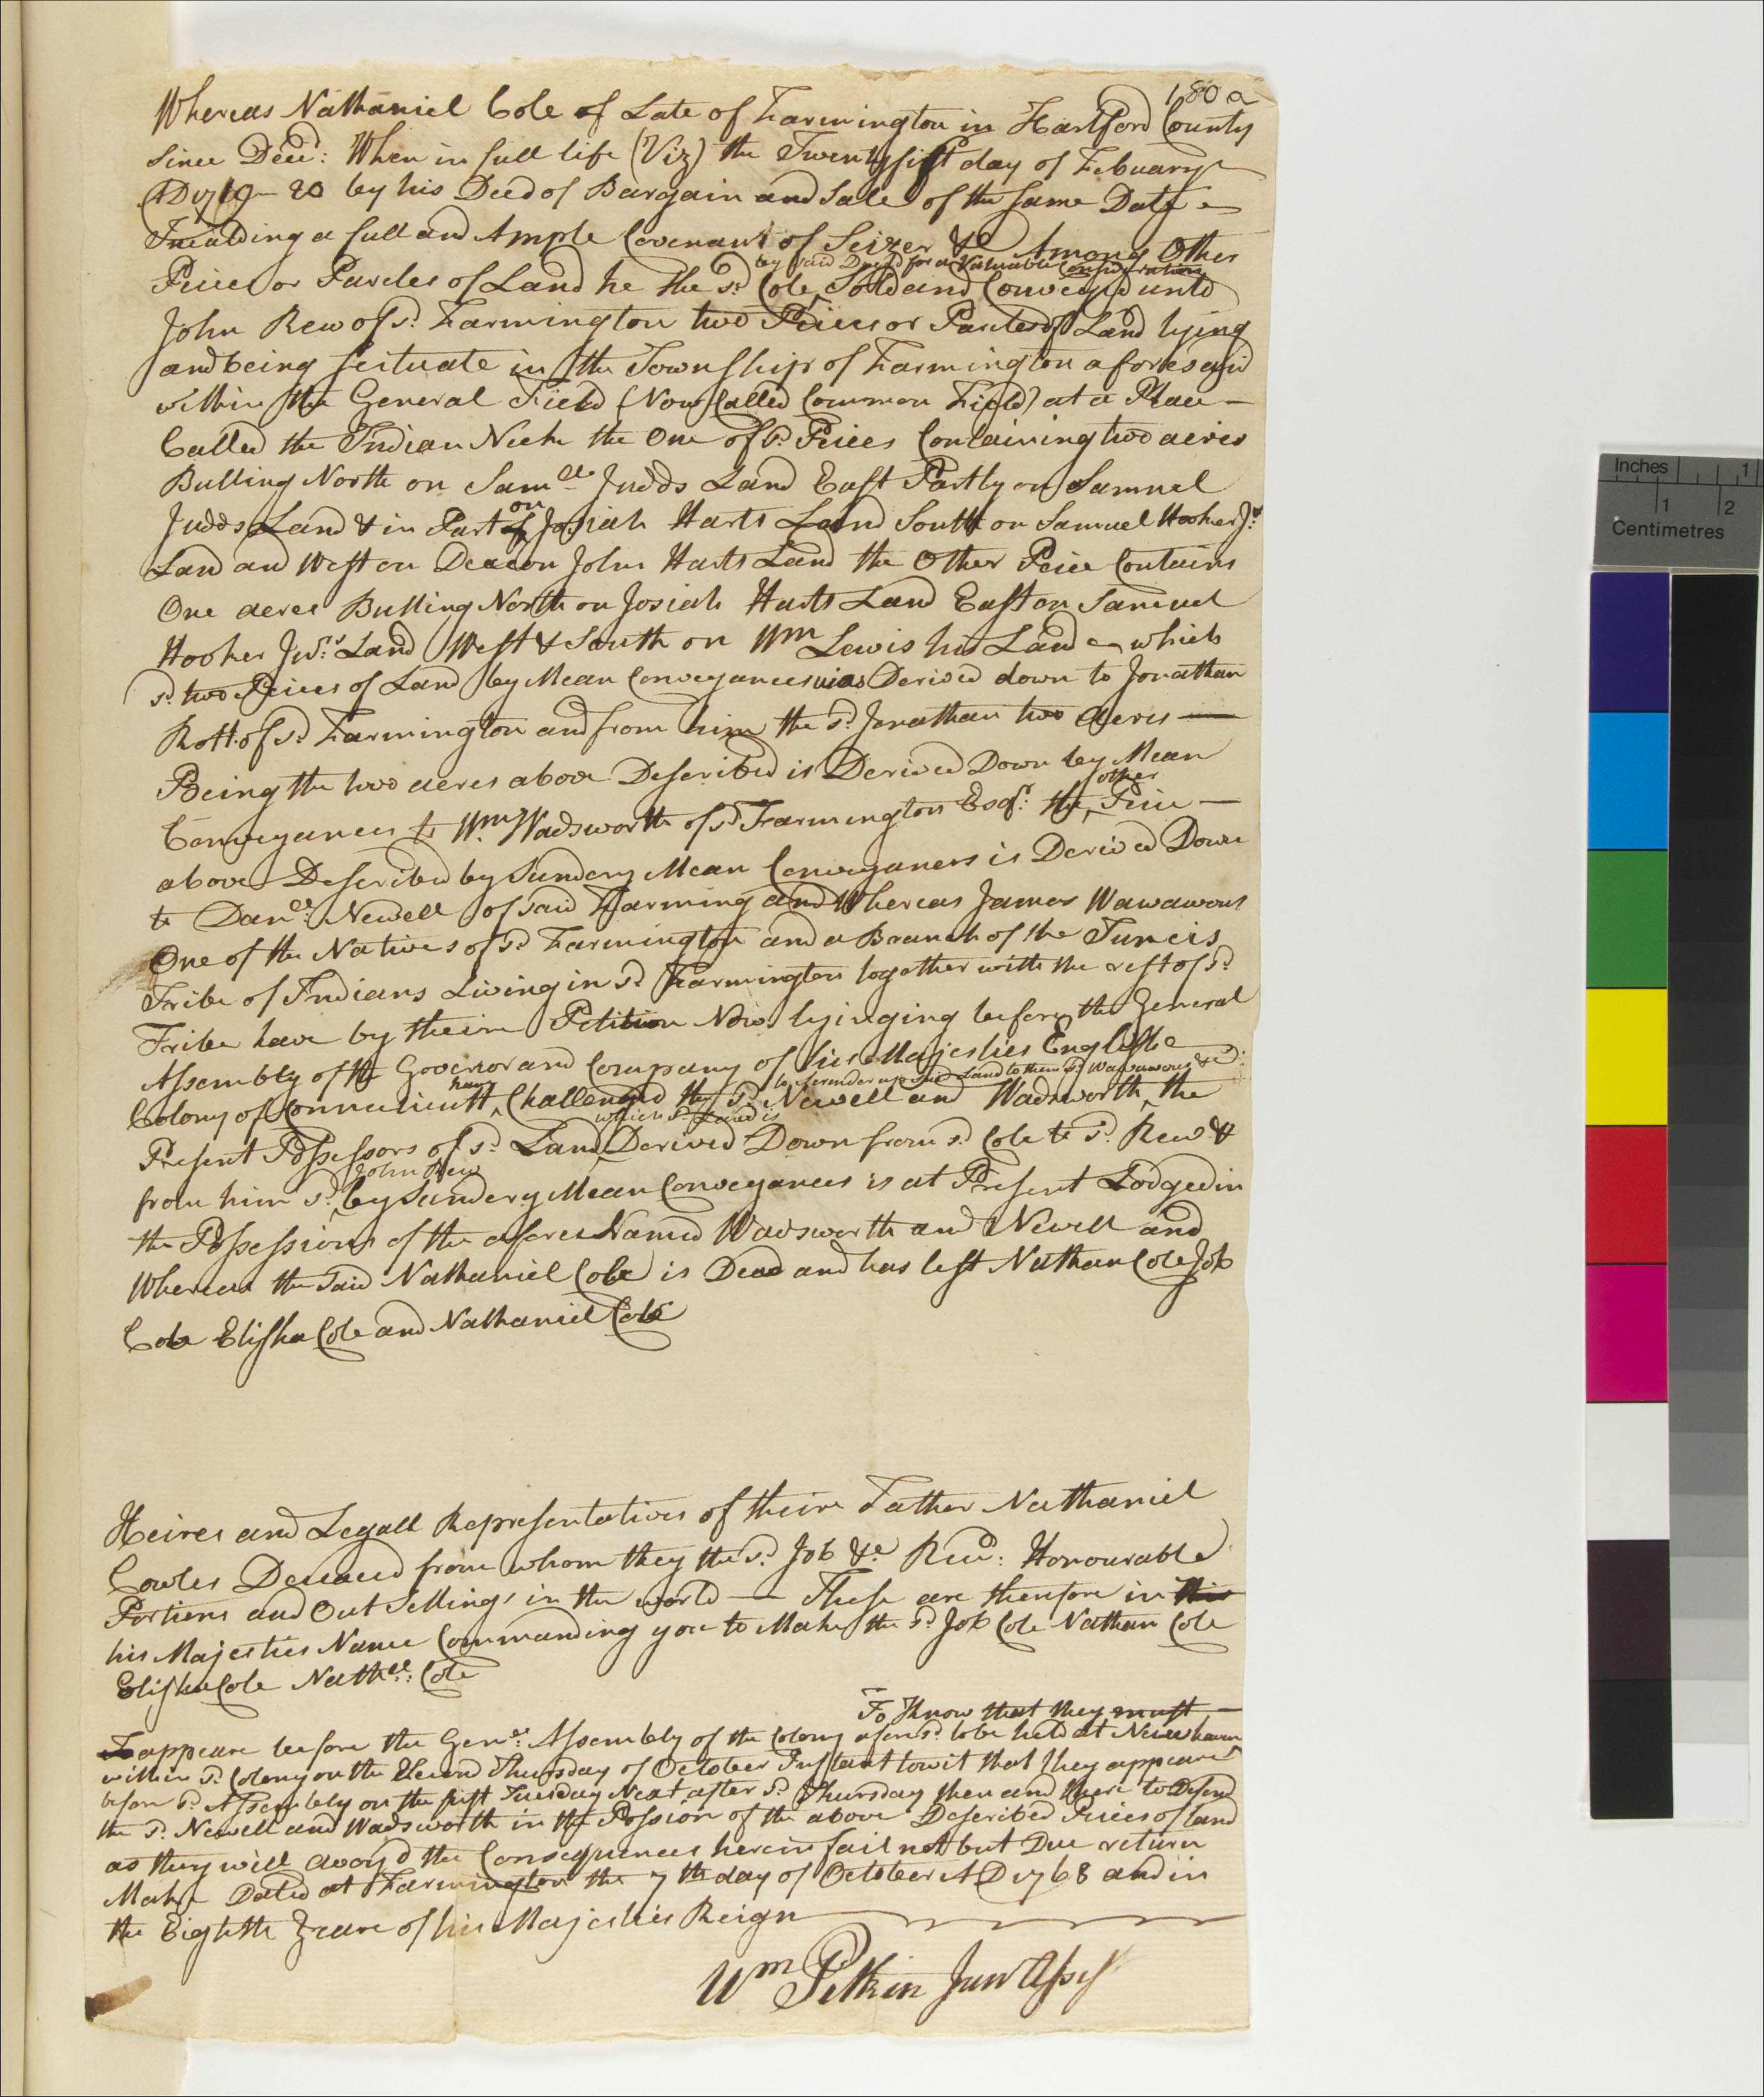 180 a
Whereas Nathaniel Cole of Late of Farmington in Hartford County
since Decd: When in full life (Viz) the Twentyfift day of Febuary
AD 1719-20 by his Deed of Bargain and Sale of the same Date
Including a full and Ample Covenant of Seizer &c Among Other
by said Deed for a Valuable Consideration
Peices or Parcles of Land he the sd Cole Sold and Conveyed unto
John Rew of sd Farmington two Peices or Parcles of Land lying
and being scituate in the Township of Farmington aforesaid
within the General Field (Now Called Common Field) at a Place
Called the Indian Neck the One of sd Peices Containing two acres
Butting North on Samll Judds Land East Partly on Samuel
on
Judds Land & in Part of Josiah Harts Land South on Samuel Hooker Jr
Land and West on Deacon John Harts Land the Other Peice Contains
One acre Butting North on Josiah Harts Land East on Samuel
Hooker Junrs Land West & South on Wm Lewis his Land which
sd two Peices of Land by Mean Conveyances was Derived down to Jonathan
Rott of sd Farmington and from him the sd Jonathan two acres
Being the two acres above Described is Derived Down by Mean
other
Conveyances to Wm Wadsworth of sd Farmington Esqr: the Peice
above Described by Sundery Mean Conveyances is Derived Down
to Danll Newell of said Farming and Whereas James Wawawous
One of the Natives of sd Farmington and a Branch of the Tuncis
Tribe of Indians Living in sd Farmington together with the rest of sd
Tribe have by theire Petition Now lyinging before the General
Assembly of the Govenor and Company of his Majesties Englishe
have to surender up said Land to them sd Wawawous &c:
Colony of Connecticutt Challenged the sd Newell and Wadsworth the
which sd Land is
Present Possessors of sd Land Derived Down from sd Cole to sd Rew &
John Rew
from him sd by Sundery Mean Conveyances is at Present Lodged in
the Possessions of the afore Named Wadsworth and Newell and
Whereas the said Nathaniel Cole is Dead and has left Nathan Cole Job
Cole Elisha Cole and Nathaniel Cole
Heires and Legall Representatives of theire Father Nathaniel
Cowles Deceaced from whom they the sd Job &c Recd: Honourable
Portions and Out Settings in the world — These are therefore in this
his Majesties Name Commanding you to Make the sd Job Cole Nathan Cole
Elisha Cole Nathll: Cole
To Know that they must
To appeare before the Genll Assembly of the Colony aforesd to be held at Newhaven
within sd Colony on the Second Thursday of October Instant towit that they appeare
before sd Assembly on the first Tuesday Next after sd Thursday then and there to Defend
the sd Newell and Wadsworth in the Possion of the above Described Peices of land
as they will avoyd the Consequences herein fail not but Due return
Make Dated at Farmington the 7th day of October AD 1768 and in
the Eighth Yeare of his Majesties Reign
Wm Pitkin Junr Assist
Inches 1
1 2
Centimetres